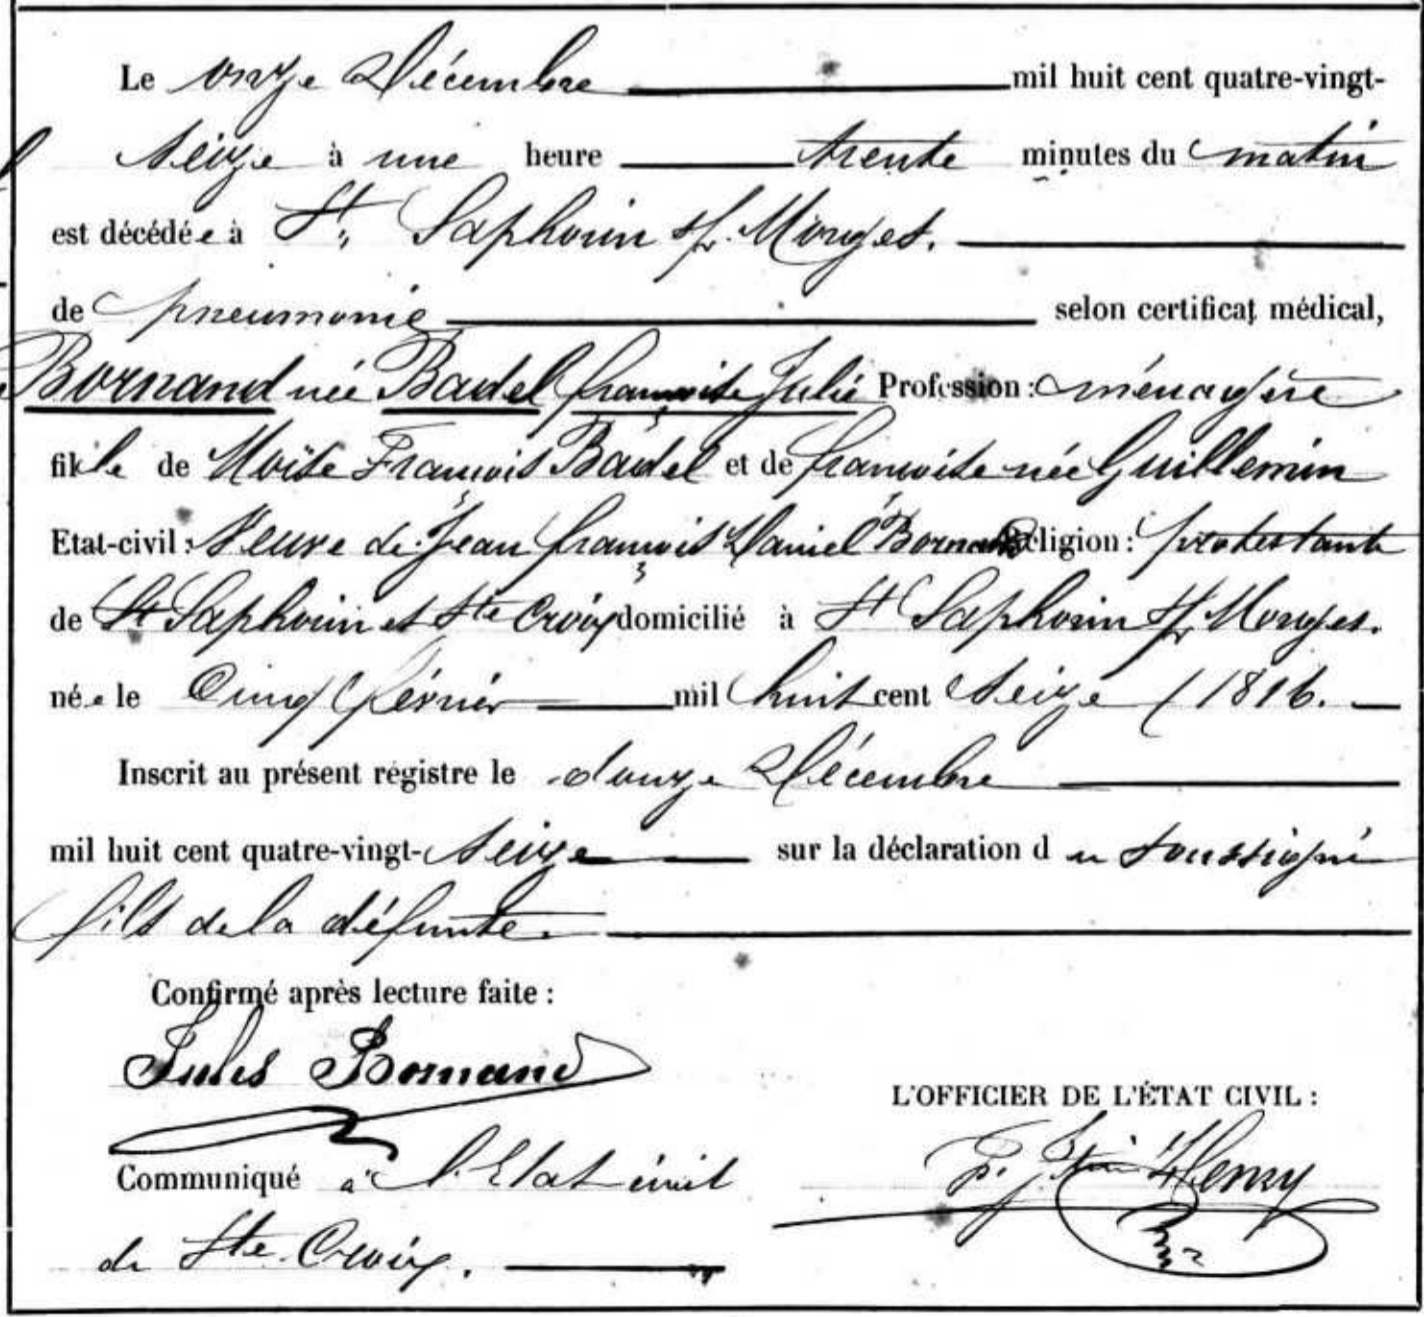 Le onze Décembre mil huit cent quatre-vingt-
seize à une heure trente minutes du matin
est décédée à St. Saphorin s/r. Morges.
de pneumonie selon certificat médical,
Bornand née Baudel françoise Julie Profession : ménagère
fille de Moïse François Baudel et de françoise née Guillemin
Etat-civil : Veuve de Jean françois Daniel Bornand Religion : protestante
de St Saphorin et Ste Croix domicilié à St Saphorin s/r Morges.
née le Cinq février mil huit cent seize (1816.
Inscrit au présent régistre le douze Décembre
mil huit cent quatre-vingt-seize sur la déclaration du soussigné
fils de la défunte.
Confirmé après lecture faite :
Jules Bornand
L'OFFICIER DE L'ÉTAT CIVIL :
Communiqué à l'Etat civil
Henry
de Ste. Croix.